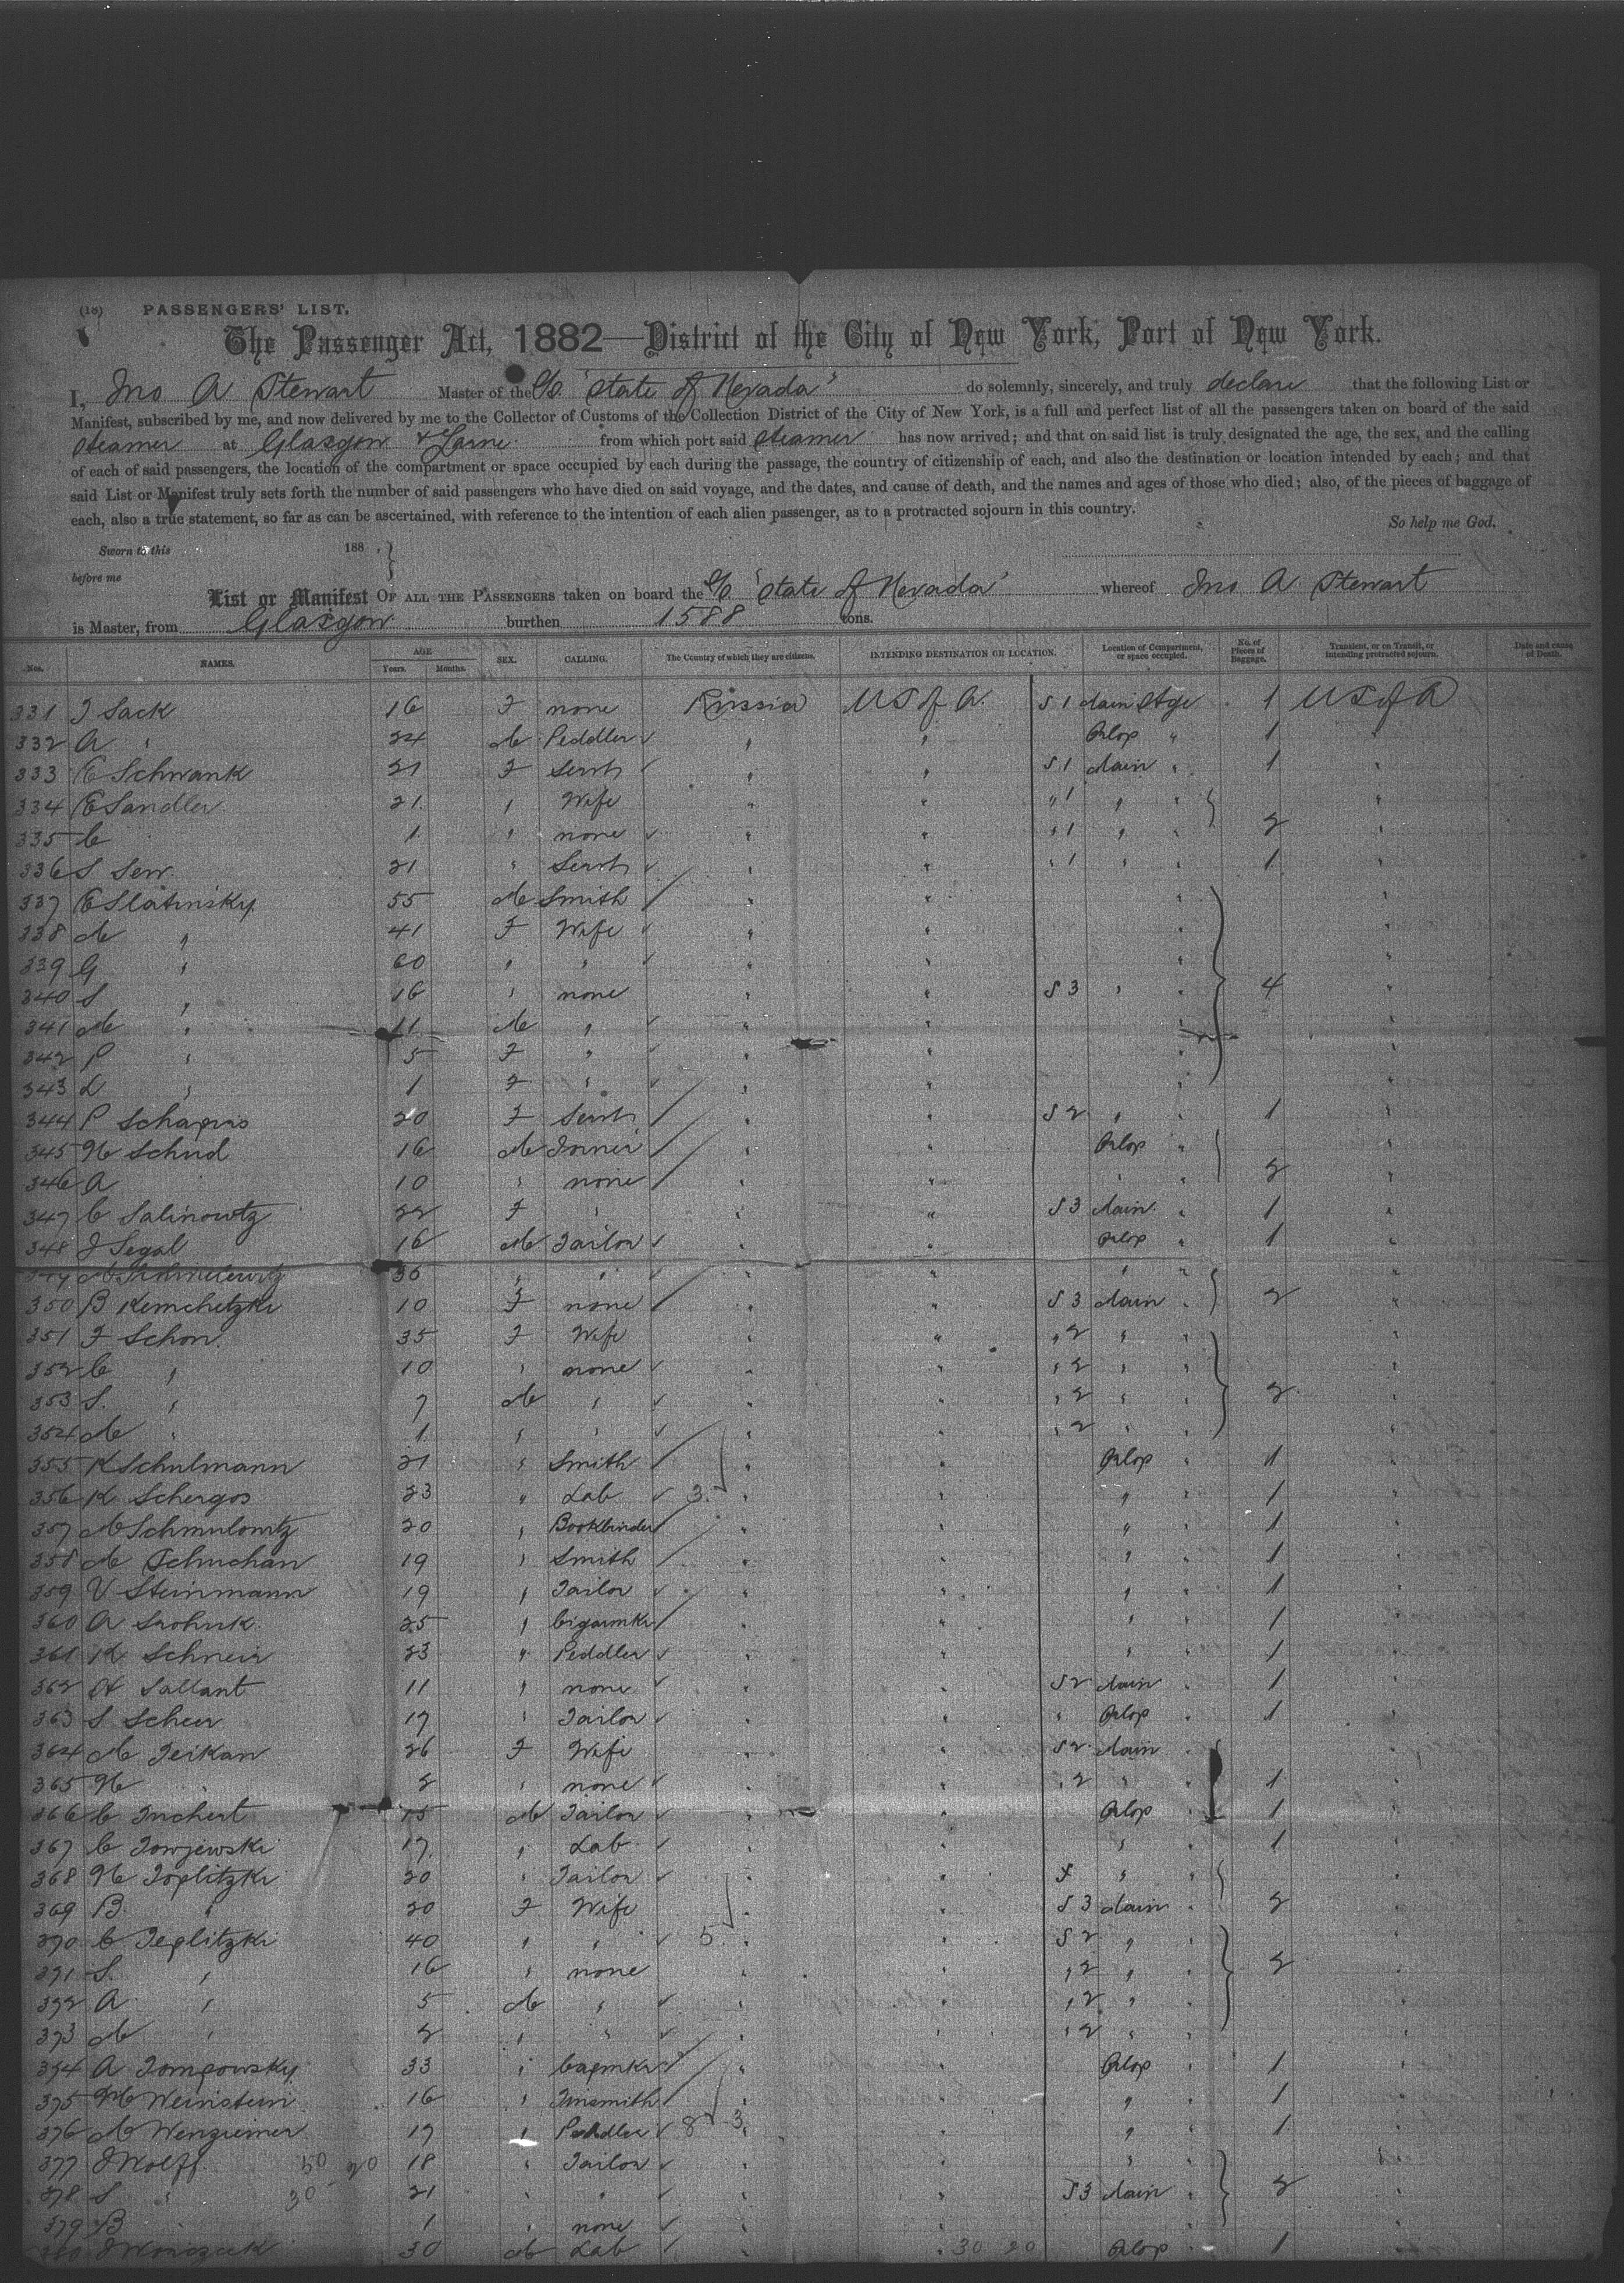 (18) PASSENGERS' LIST.
The Passenger Act, 1882—District of the City of New York, Port of New York.
I, Jno A Stewart Master of the S/S. "State of Nevada" do solemnly, sincerely, and truly declare that the following List or
Manifest, subscribed by me, and now delivered by me to the Collector of Customs of the Collection District of the City of New York, is a full and perfect list of all the passengers taken on board of the said
steamer at Glasgow & Larne from which port said steamer has now arrived; and that on said list is truly designated the age, the sex, and the calling
of each of said passengers, the location of the compartment or space occupied by each during the passage, the country of citizenship of each, and also the destination or location intended by each; and that
said List or Manifest truly sets forth the number of said passengers who have died on said voyage, and the dates, and cause of death, and the names and ages of those who died; also, of the pieces of baggage of
each, also a true statement, so far as can be ascertained, with reference to the intention of each alien passenger, as to a protracted sojourn in this country.
So help me God.
Sworn to this 188
before me
List or Manifest OF ALL THE PASSENGERS taken on board the S/S "State of Nevada" whereof Jno A Stewart
is Master, from Glasgow burthen 1588 tons.
Nos. NAMES. AGE Years. Months. SEX. CALLING. The Country of which they are citizens. INTENDING DESTINATION OR LOCATION. Location of Compartment, or space occupied. No. of Pieces of Baggage. Transient, or on Transit, or intending protracted sojourn. Date and cause of Death.
331 J Sack 16 F none Russia US of A. S 1 Main Stge 1 US of A
332 A " 24 M Peddler " " Orlop " 1 "
333 E Schwank 21 F Servt " " S 1 Main " 1 "
334 E Sandler 21 " Wife " " " 1 " " "
335 C 1 " none " " " 1 " " 2 "
336 S Serr 21 " Servt " " " 1 " " 1 "
337 E Slatinsky 55 M Smith " " " "
338 M " 41 F Wife " " " "
339 G " 60 " " " " " "
340 S " 16 " none " " S 3 " " 4 "
341 M " 11 M " " " " "
342 P " 5 F " " " " "
343 L " 1 F " " " " "
344 P Schapiro 20 F Servt " " S 2 " " 1 "
345 H Schud 16 M Joiner " " Orlop " "
346 A 10 " none " " " " 2 "
347 C Salinowtz 22 F " " " S 3 Main " 1 "
348 J Segal 16 M Tailor " " Orlop " 1 "
36 " " " " " " "
350 B Kemchetzki 10 F none " " S 3 Main " 2 "
351 F Schon 35 F Wife " " " 2 " " "
352 C " 10 " none " " " 2 " " "
353 S. " 7 M " " " " 2 " " 2 "
354 M " 1 " " " " " 2 " " "
355 K Schulmann 21 " Smith " " Orlop " 1 "
356 K Schergos 23 " Lab 3 " " " " 1 "
357 M Schmulowtz 20 " Bookbinder " " " " 1 "
358 M Schuchan 19 " Smith " " " " 1 "
359 V Steinmann 19 " Tailor " " " " 1 "
360 A 25 " Cigarmkr " " " " 1 "
361 K Schneir 23 " Peddler " " " " 1 "
362 A Sallant 11 " none " " S 2 Main " 1 "
363 S Scheer 17 " Tailor " " " Orlop " 1 "
364 M Teikan 26 F Wife " " S 2 Main " "
365 H " 2 " none " " " 2 " " 1 "
366 C Tuchert 15 M Tailor " " Orlop " 1 "
367 C Towjewski 17 " Lab " " " " 1 "
368 H Toplitzki 20 " Tailor " " " " "
369 B. " 20 F Wife " " S 3 Main " 2 "
370 C Teplitzki 40 " " 5 " " S 2 " " "
371 S. " 16 " none " " " 2 " " 2 "
372 A " 5 M " " " " 2 " " "
373 M " 2 " " " " " 2 " " "
374 A Tompowsky 33 " Capmkr " " Orlop " 1 "
375 H Weinstein 16 " Tinsmith " " " " 1 "
376 M Wengiemer 17 " Peddler 8 3 " " " " 1 "
377 J Wolff 50 20 18 " Tailor " " " " "
378 S " 30 21 " " " " S 3 Main " 2 "
379 B " 1 " none " " " "
30 M Lab " " 30 20 Orlop " 1 "